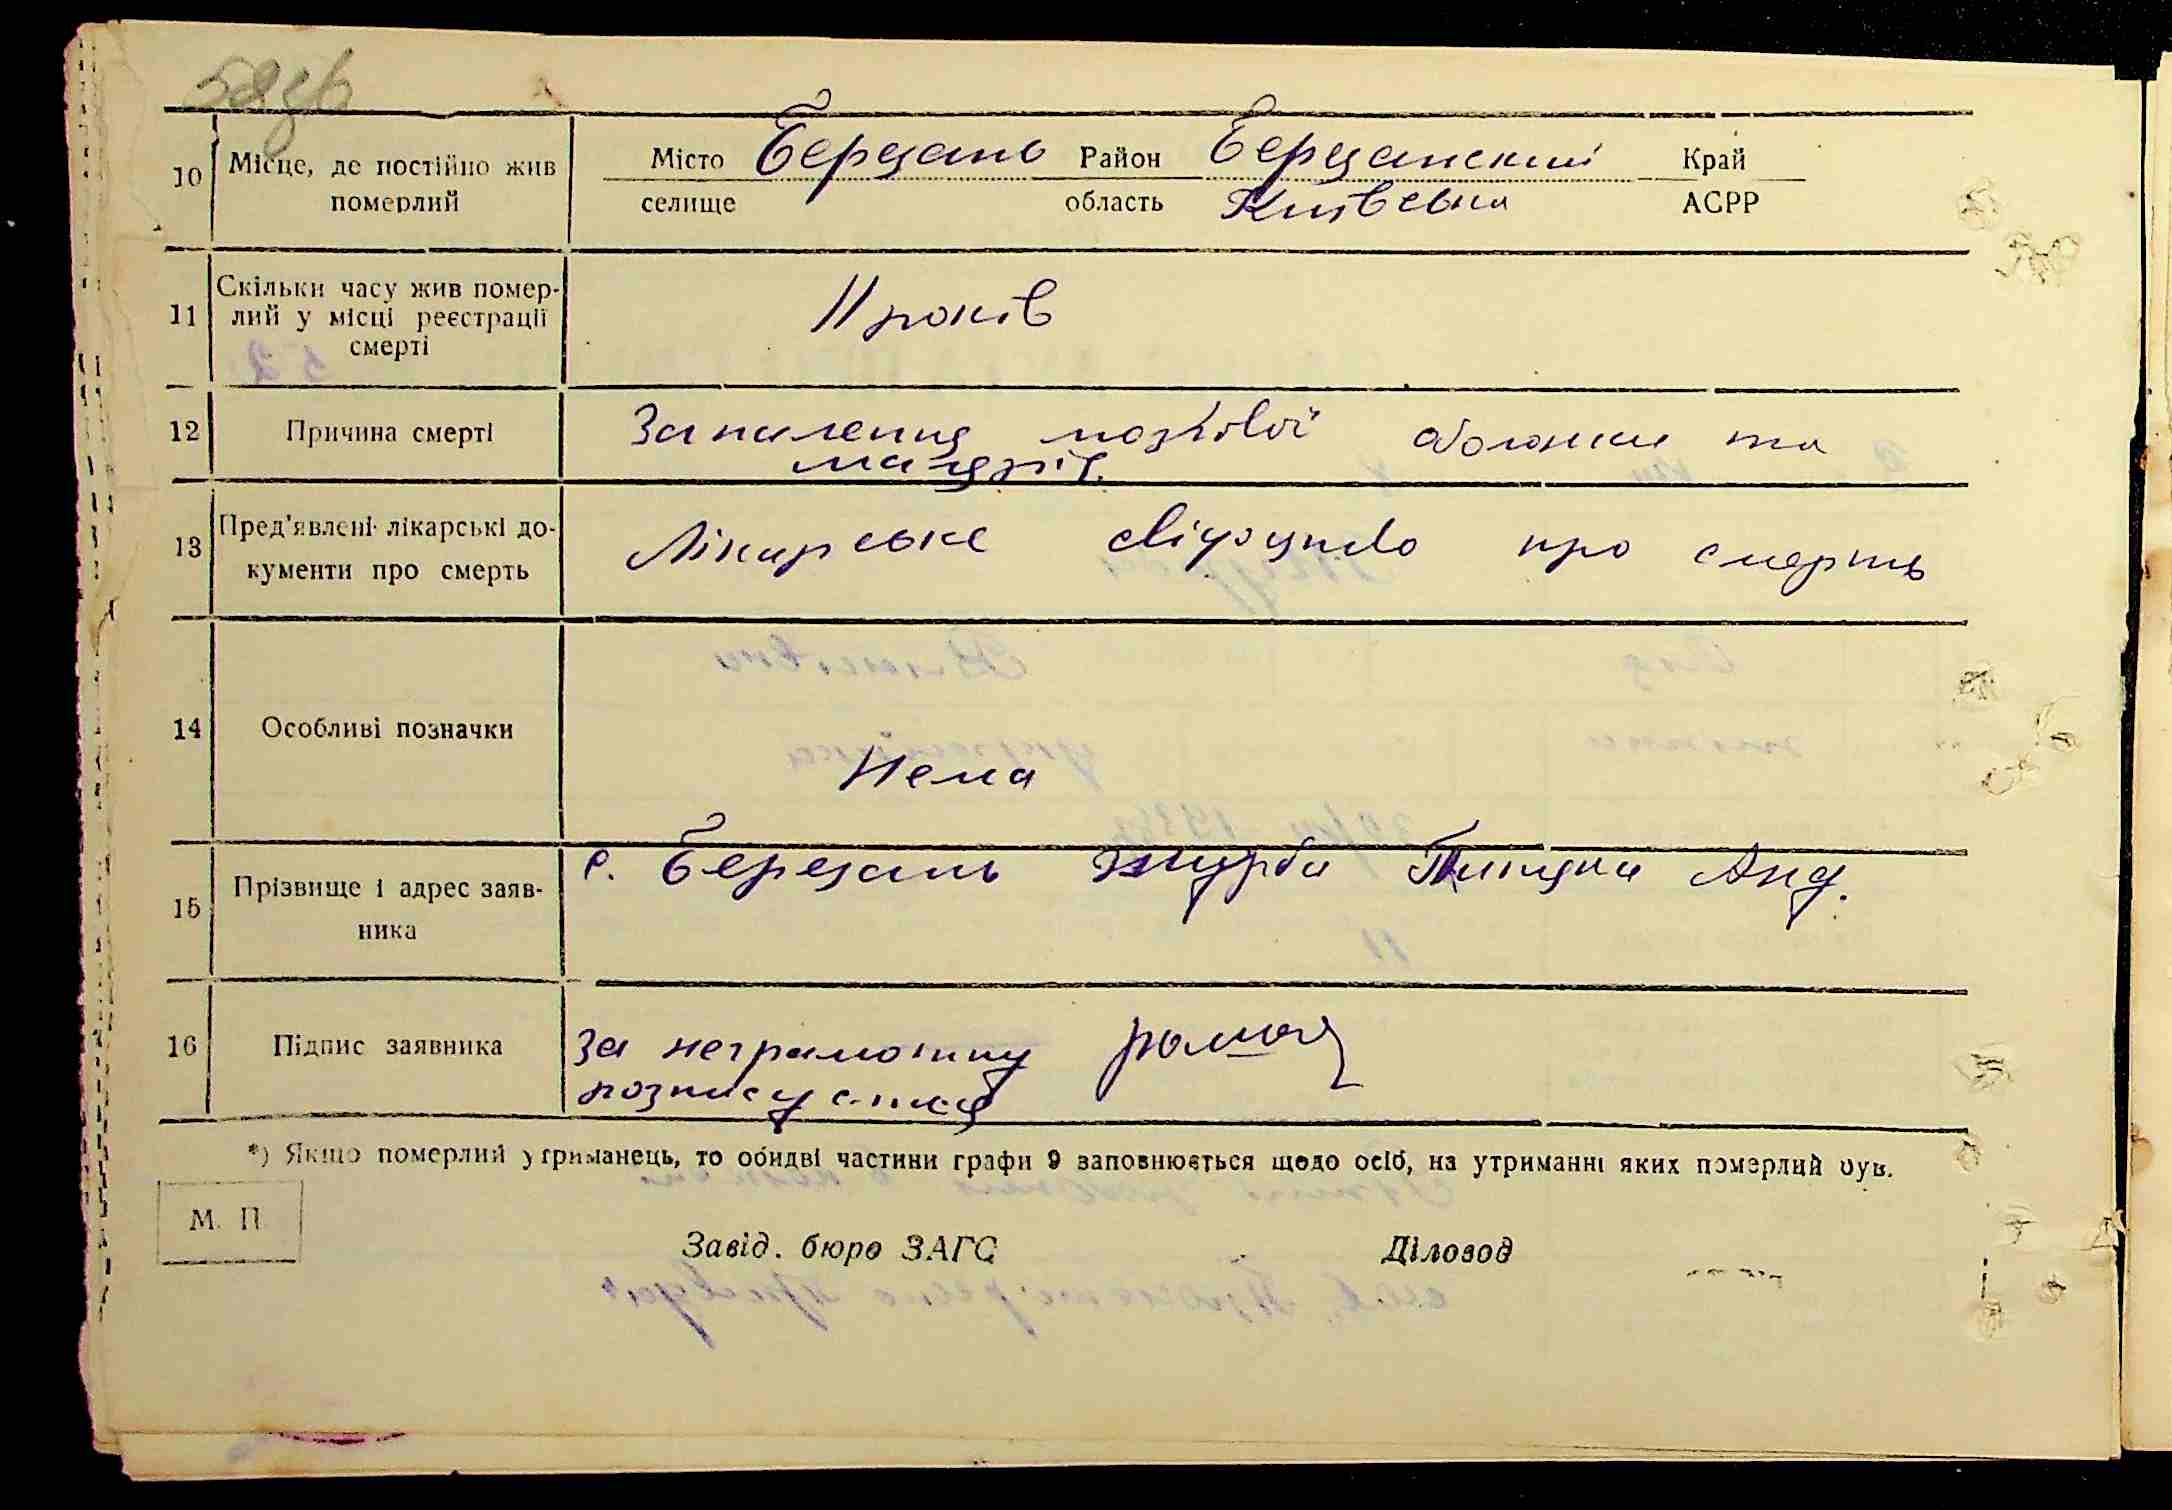 10 Місце, де постійно жив померлий
Місто Берцань Район Берцанский Край
селище область Київська АСРР
11 Скільки часу жив помер-
лий у місці реєстрації
смерті
11 років
12 Причина смерті
Запалення мозкової оболонки та
13 Пред'явлені лікарські до-
кументи про смерть
Лікарське свідоцтво про смерть
14 Особливі позначки
Нема
15 Прізвище і адрес заяв-
ника
с. Березань Журба Анд.
16 Підпис заявника
За неграмотну
*) Якщо померлий утриманець, то обидві частини графи 9 заповнюється щодо осіб, на утриманні яких померлий був.
М. П.
Завід. бюро ЗАГС Діловод